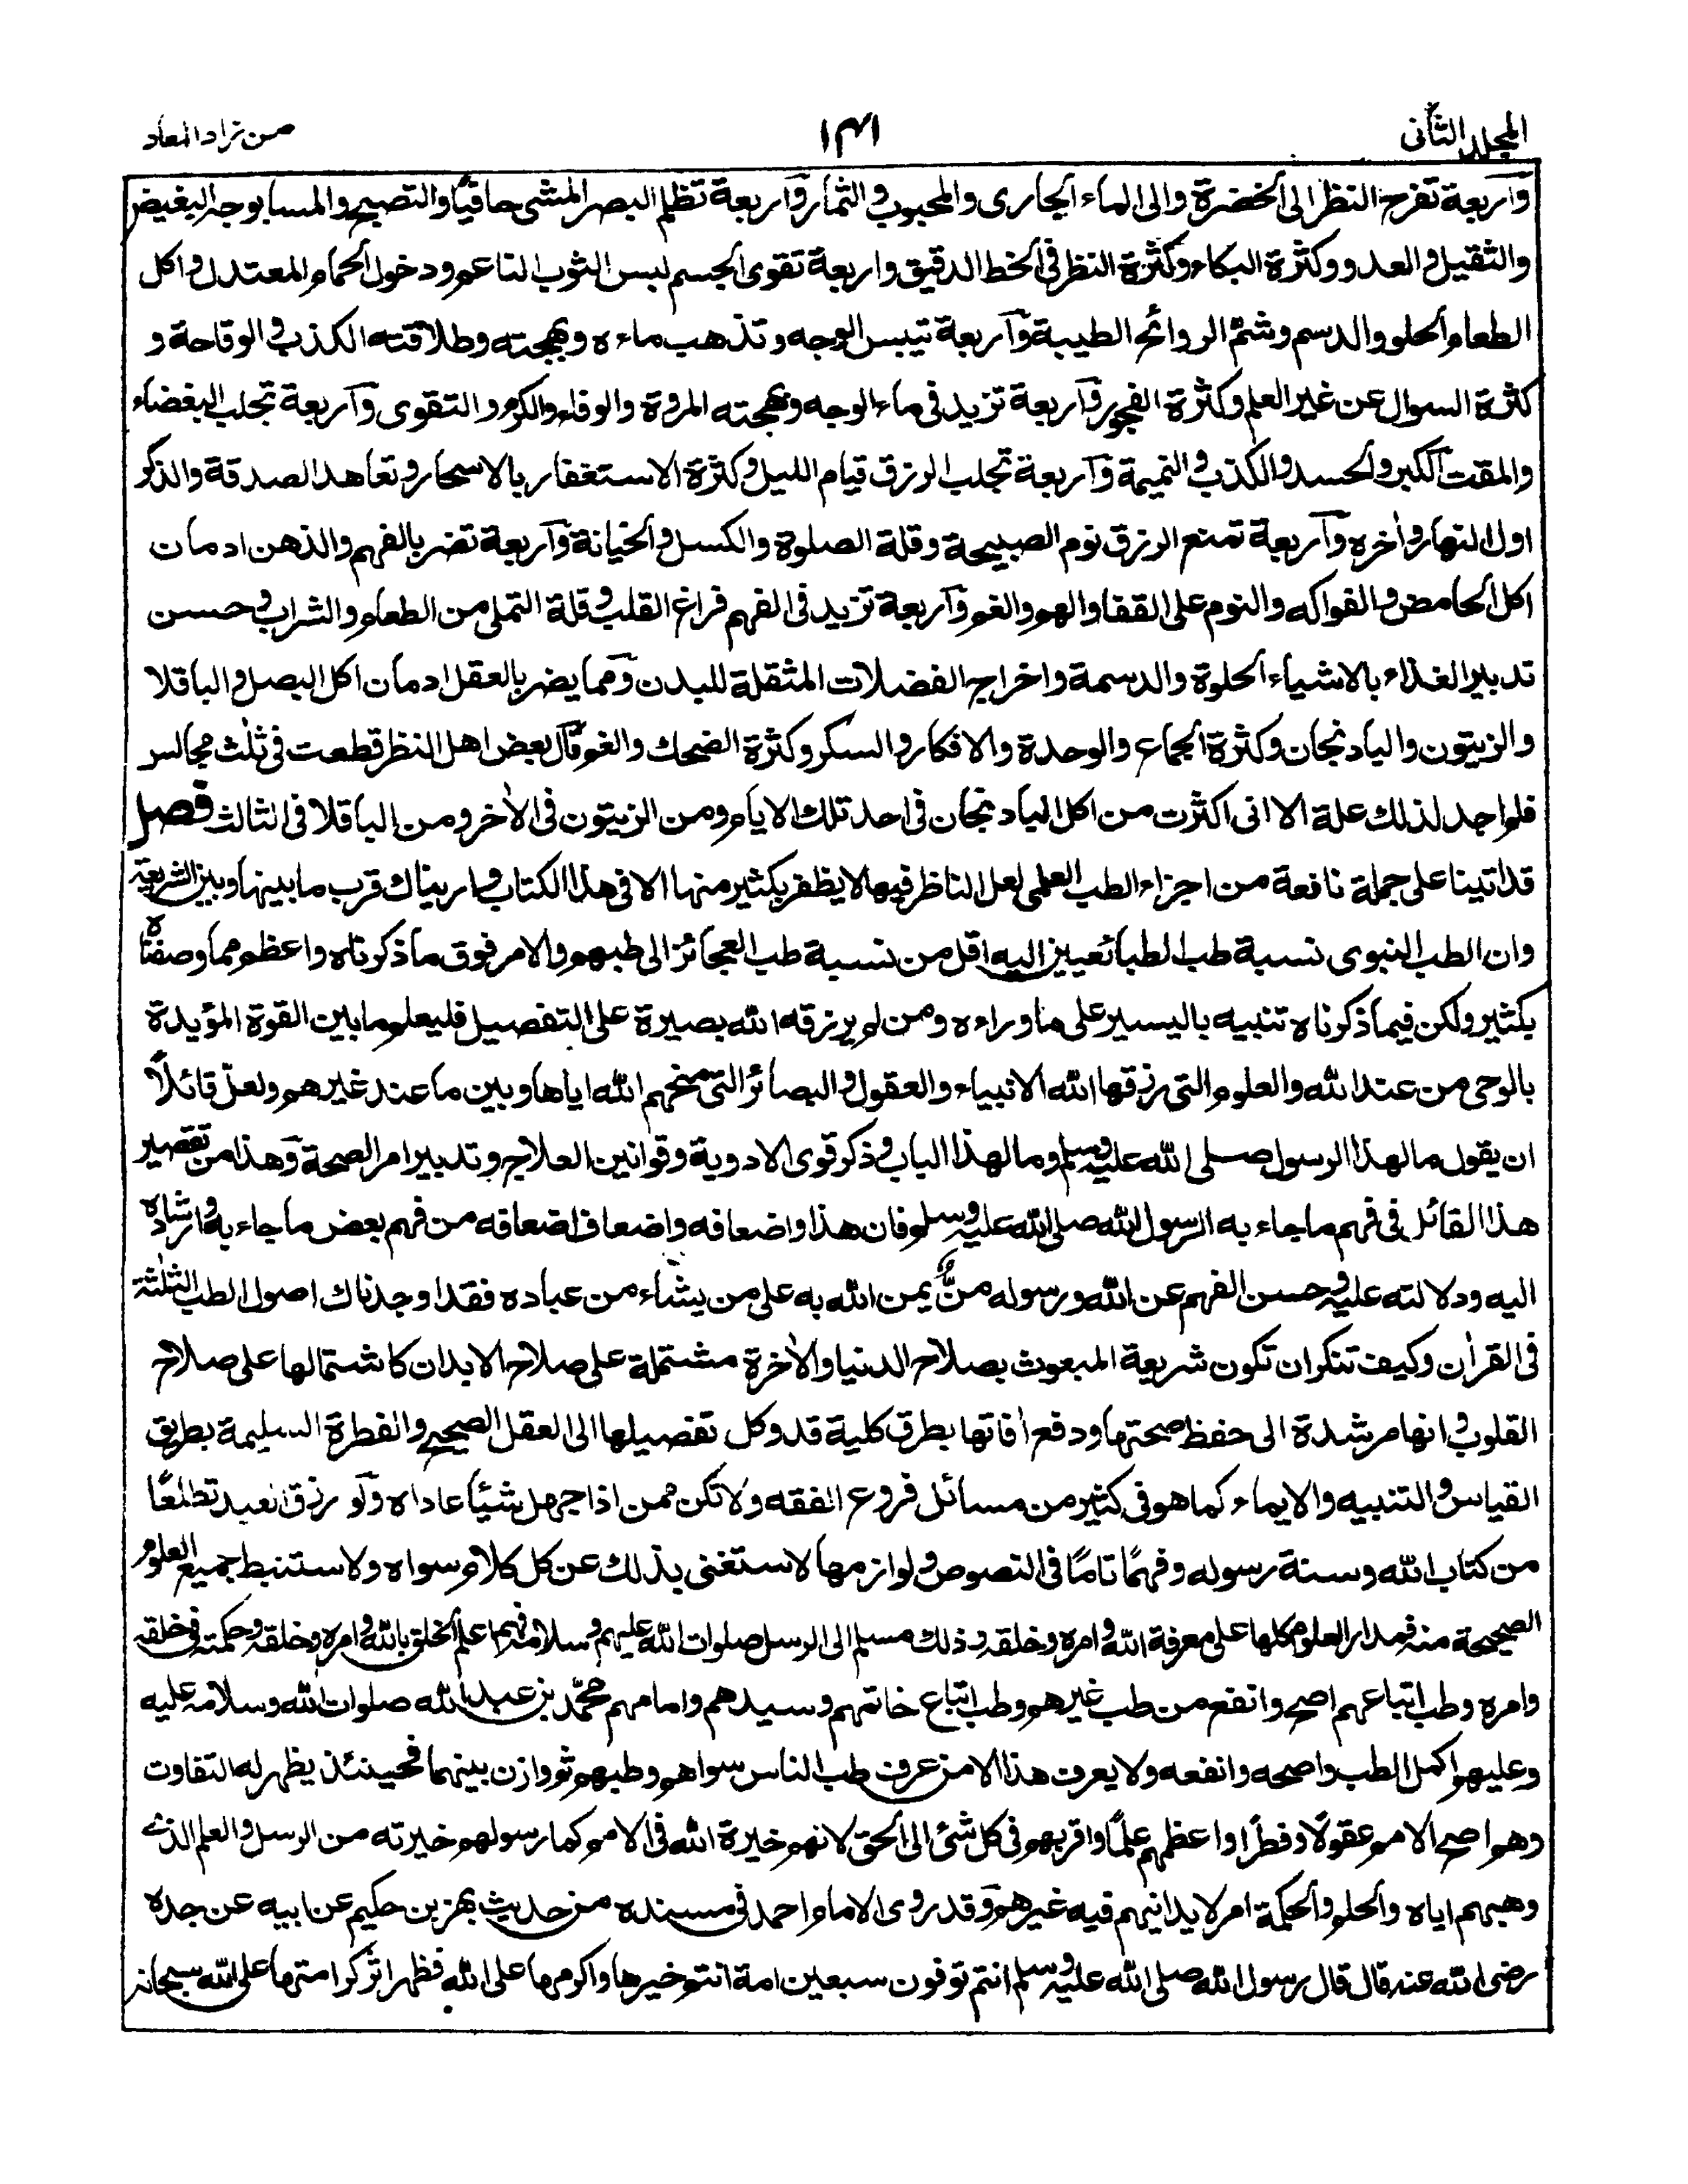 المجلد الثانى
١٣١
من زاد المعاد
وآربعة تفرح النظر الى الخضرة والى الماء الجارى والمحبوب و الثمار وآربعة تظلم البصر المشى حافيًا والتصبيح والمسا بوجه البغيض
والثقيل و العدو وكثرة البكاء وكثرة النظر فى الخط الدقيق واربعة تقوى الجسم لبس الثوب الناعم ودخول الحمام المعتدل و اكل
الطعام الحلو والدسم وشمّ الروائح الطيبة وآربعة تيبس الوجه وتذهب ماءه وبهجته وطلاقته الكذب و الوقاحة و
كثرة السوال عن غير العلم وكثرة الفجور وآربعة تزيد فى ماء الوجه وبهجته المروة والوفاء والكرم و التقوى وآربعة تجلب البغضاء
والمقت الكبر والحسد والكذب و النميمة وآربعة تجلب الرزق قيام الليل و كثرة الاستغفار بالاسحار و تعاهد الصدقة والذكر
اول النهار و اٰخره وآربعة تمنع الرزق نوم الصبيحة وقلة الصلوة والكسل و الخيانة وآربعة تضر بالفهم والذهن ادمان
اكل الحامض و الفواكه والنوم على القفا والهم والغم وآربعة تزيد فى الفهم فراغ القلب و قلة التملى من الطعام والشراب و حسن
تدبير الغذاء بالاشياء الحلوة والدسمة واخراج الفضلات المثقلة للبدن ومما يضر بالعقل ادمان اكل البصل و الباقلا
والزيتون والبادنجان وكثرة الجماع والوحدة والافكار و السكر وكثرة الضحك والغم قال بعض اهل النظر قطعت فى ثلٰث مجالس
فلم اجد لذلك علة الا انى اكثرت من اكل البادنجان فى احد تلك الايام ومن الزيتون فى الاٰخر ومن الباقلا فى الثالث فصل
قد اتينا على جملة نافعة من اجزاء الطب العلمى لعل الناظر فيها لا يظفر بكثير منها الا فى هذا الكتاب و اريناك قرب ما بينها وبين الشريعة
وان الطب النبوى نسبة طب الطبائعيين اليه اقل من نسبة طب العجائز الى طبهم والامر فوق ما ذكرناه واعظم مما وصفناه
بكثير ولكن فيما ذكرناه تنبيه باليسير على ما وراءه ومن لم يرزقه الله بصيرة على التفصيل فليعلم ما بين القوة المؤيدة
بالوحى من عند الله والعلوم التى رزقها الله الانبياء والعقول و البصائر التى منحهم الله اياها وبين ما عند غيرهم ولعل قائلًا
ان يقول ما لهذا الرسول صلى الله عليه وسلم وما لهذا الباب و ذكر قوى الادوية وقوانين العلاج و تدبير امر الصحة وهذا من تقصير
هذا القائل فى فهم ما جاء به الرسول الله صلى الله عليه وسلم فان هذا واضعافه واضعاف اضعافه من فهم بعض ما جاء به و ارشاده
اليه ودلالته عليه و حسن الفهم عن الله ورسوله منٌّ يمن الله به على من يشاء من عباده فقد اوجدناك اصول الطب الثلٰثة
فى القراٰن وكيف تنكر ان تكون شريعة المبعوث بصلاح الدنيا والاٰخرة مشتملة على صلاح الابدان كاشتمالها على صلاح
القلوب و انها مرشدة الى حفظ صحتها ودفع اٰفاتها بطرق كلية قد وكل تفصيلها الى العقل الصحيح والفطرة السليمة بطريق
القياس و التنبيه والايماء كما هو فى كثير من مسائل فروع الفقه ولا تكن ممن اذا جهل شيئًا عاداه ولو رزق العبد تطلعًا
من كتاب الله وسنة رسوله وفهمًا تامًا فى النصوص و لوازمها لاستغنى بذلك عن كل كلام سواه ولاستنبط جميع العلوم
الصحيحة منه فمدار العلوم كلها على معرفة الله و امره وخلقه و ذلك مسلم الى الرسل صلوات الله عليهم و سلامه فهم اعلم الخلق بالله و امره وخلقه وحكمته فى خلقه
وامره وطب اتباعهم اصح وانفع من طب غيرهم وطب اتباع خاتمهم وسيدهم وامامهم محمّد بن عبد الله صلوات الله وسلامه عليه
وعليهم اكمل الطب واصحه وانفعه ولا يعرف هذا الا من عرف طب الناس سواهم وطبهم ثم وازن بينهما فحينئذ يظهر له التفاوت
وهم اصح الامم عقولًا وفطرًا واعظمهم علمًا واقربهم فى كل شئ الى الحق لانهم خيرة الله فى الامم كما رسولهم خيرته من الرسل و العلم الذى
وهبهم اياه والحلم والحكمة امر لا يدانيهم فيه غيرهم وقد روى الامام احمد فى مسنده من حديث بهز بن حكيم عن ابيه عن جده
رضى الله عنه قال قال رسول الله صلى الله عليه وسلم انتم توفون سبعين امة انتم خيرها واكرمها على الله فظهر اثر كرامتها على الله سبحانه